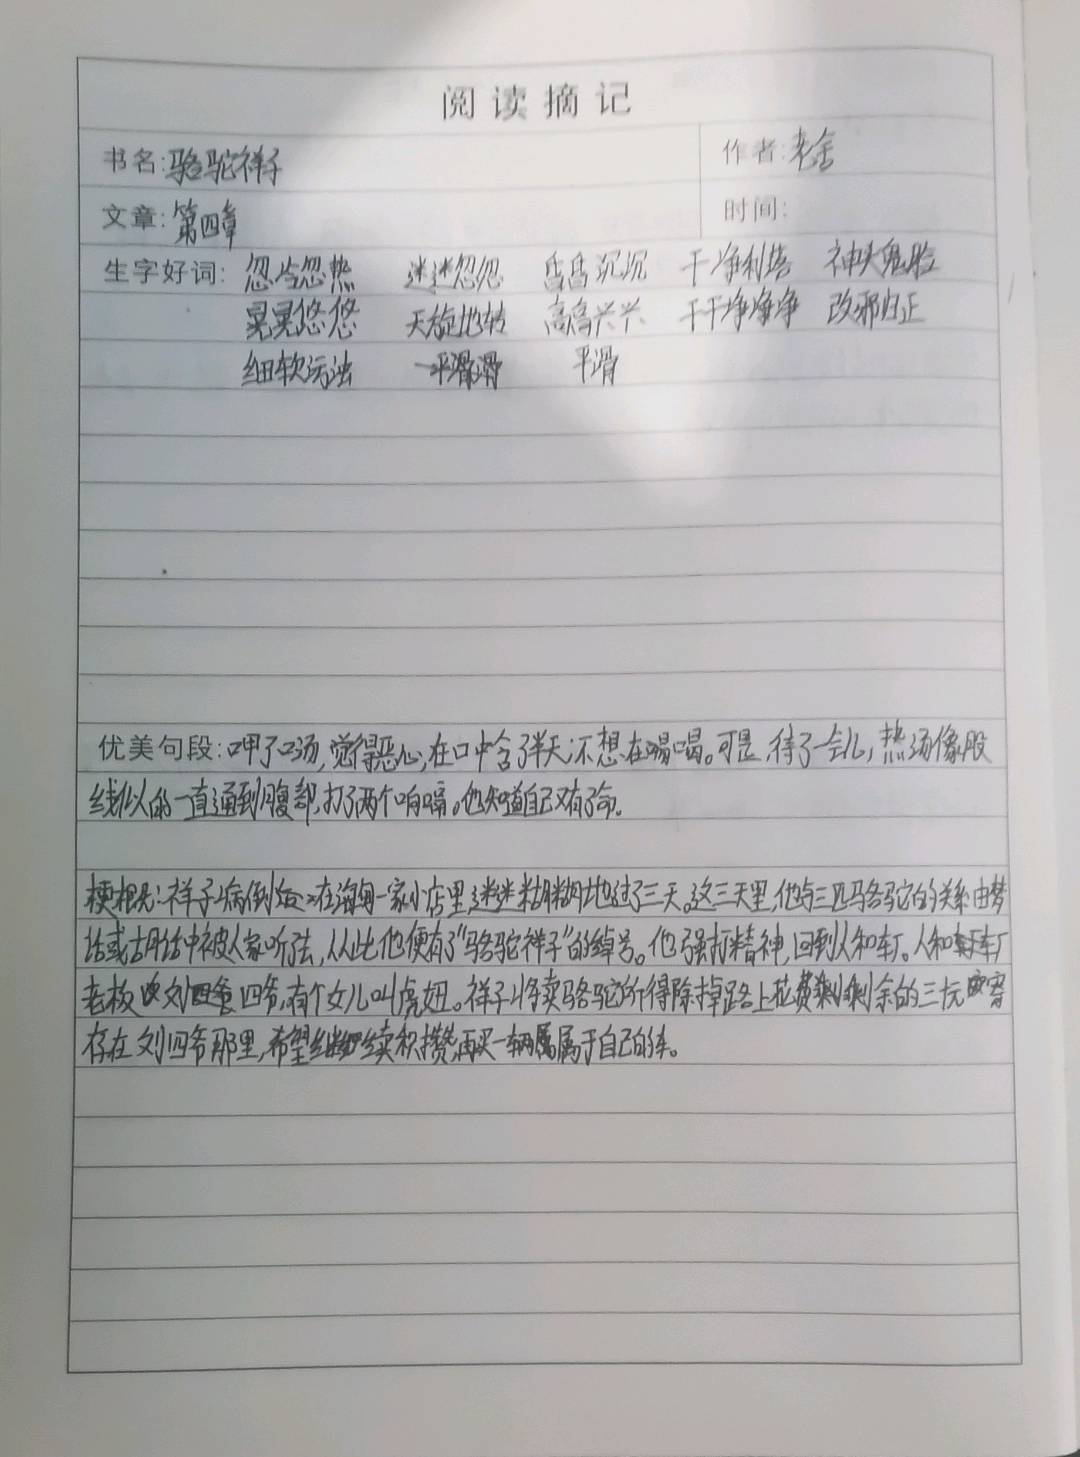 阅读摘记
书名:骆驼祥子 作者:老舍
文章:第四章 时间:
生字好词: 忽冷忽热 迷迷忽忽 昏昏沉沉 干净利落 神头鬼脸
晃晃悠悠 天旋地转 高高兴兴 干干净净 改邪归正
细软污浊 平滑
优美句段:呷了口汤,觉得恶心,在口中含了半天,不想在喝。可是,待了一会儿,热汤像股
线似的一直通到腹部,打了两个响嗝。他知道自己又有了命。
梗概:祥子病倒后在海甸一家小店里迷迷糊糊地过了三天。这三天里,他与三匹骆驼的关系由梦
话或胡话中被人家听去,从此他便有了"骆驼祥子"的绰号。他强打精神,回到人和车厂。人和车厂
老板刘四爷,有个女儿叫虎妞。祥子将卖骆驼所得除掉路上花费剩余的三十元
存在刘四爷那里,希望继续积攒,再买一辆属于自己的车。